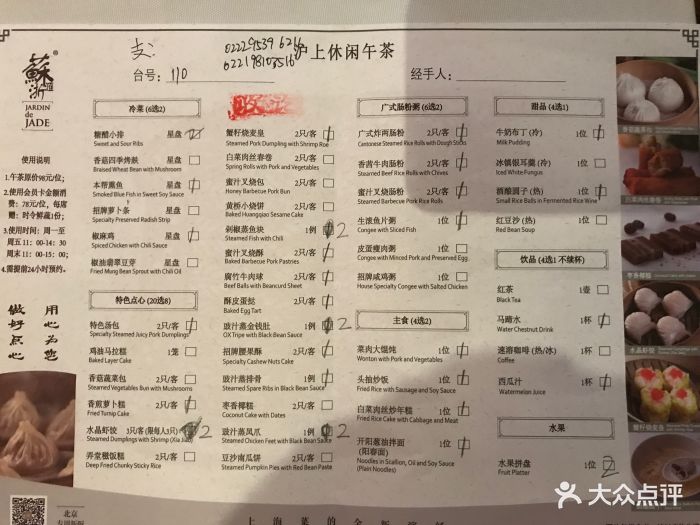 蘇浙匯
JARDIN
de
JADE
支:
02229153962
622198103516
沪上休闲午茶
台号: 110
经手人:
使用说明
1.午茶原价98元/位;
2.使用会员卡金额消
费: 78元/位, 每席
赠: 时令鲜蔬1份;
3.使用时间: 周一至
周五11:00-14:30
周末11:00-15:00;
4.需提前24小时预约。
用心为您
做好点心
北京
冷菜 (6选2)
糖醋小排 星盘
Sweet and Sour Ribs
香菇四季烤麸 星盘
Braised Wheat Bean with Mushroom
本帮熏鱼 星盘
Smoked Blue Fish in Sweet Soy Sauce
招牌萝卜条 星盘
Specialty Preserved Radish Strip
椒麻鸡 星盘
Spiced Chicken with Chili Sauce
椒油翡翠豆芽 星盘
Fried Mung Bean Sprout with Chili Oil
特色点心 (20选8)
特色汤包 2只/客
Specialty Steamed Juicy Pork Dumplings
鸡油马拉糕 1笼
Baked Layer Cake
香菇蔬菜包 2只/客
Steamed Vegetables Bun with Mushrooms
香煎萝卜糕 2只/客
Fried Turnip Cake
水晶虾饺 3只/客 (限每人3只) 2
Steamed Dumplings with Shrimp (Xia Jiao)
弄堂糍饭糕 2只/客
Deep Fried Chunky Sticky Rice
蟹籽烧麦皇 2只/客
Steamed Pork Dumpling with Shrimp Roe
白菜肉丝春卷 2只/客
Spring Rolls with Pork and Vegetables
蜜汁叉烧包 2只/客
Honey Barbecue Pork Bun
黄桥小烧饼 2只/客
Baked Huangqiao Sesame Cake
剁椒蒸鱼块 1例 2
Steamed Fish with Chili
蜜汁叉烧酥 2只/客
Baked Barbecue Pork Pastries
腐竹牛肉球 2只/客
Beef Balls with Beancurd Sheet
酥皮蛋挞 2只/客
Baked Egg Tart
豉汁蒸金钱肚 1例 2
OX Tripe with Black Bean Sauce
招牌腰果酥 2只/客
Specialty Cashew Nuts Cake
豉汁蒸排骨 1例 2
Steamed Spare Ribs in Black Bean Sauce
枣香椰糕 2只/客
Coconut Cake with Dates
豉汁蒸凤爪 1例 2
Steamed Chicken Feet with Black Bean Sauce
豆沙南瓜饼 2只/客
Steamed Pumpkin Pies with Red Bean Paste
广式肠粉粥 (6选2)
广式炸两肠粉 2只/客
Cantonese Steamed Rice Rolls with Dough Sticks
香茜牛肉肠粉 2只/客
Steamed Beef Rice Rolls with Chives
蜜汁叉烧肠粉 2只/客
Steamed Barbecue Pork Rice Rolls
生滚鱼片粥 1位
Congee with Sliced Fish
皮蛋瘦肉粥 1位
Congee with Minced Pork and Preserved Egg
招牌咸鸡粥 1位
House Specialty Congee with Salted Chicken
主食 (4选2)
菜肉大馄饨 1位
Wonton with Pork and Vegetables
头抽炒饭 1位
Fried Rice with Sausage and Soy Sauce
白菜肉丝炒年糕 1位
Fried Rice Cake with Cabbage and Meat
开阳葱油拌面 1位
(阳春面)
Noodles in Scallion, Oil and Soy Sauce
(Plain Noodles)
甜品 (4选1)
牛奶布丁 (冷) 1位
Milk Pudding
冰镇银耳羹 (冷) 1位
Iced White Fungus
酒酿圆子 (热) 1位
Small Rice Balls in Fermented Rice Wine
红豆沙 (热) 1位
Red Bean Soup
饮品 (4选1 不续杯)
红茶 1壶
Black Tea
马蹄水 1杯
Water Chestnut Drink
速溶咖啡 (热/冰) 1杯
Coffee
西瓜汁 1杯
Watermelon Juice
水果
水果拼盘 1位 2
Fruit Platter
香菇蔬菜包
白菜肉丝春卷
枣香椰糕
水晶虾饺
蟹籽烧麦皇
大众点评